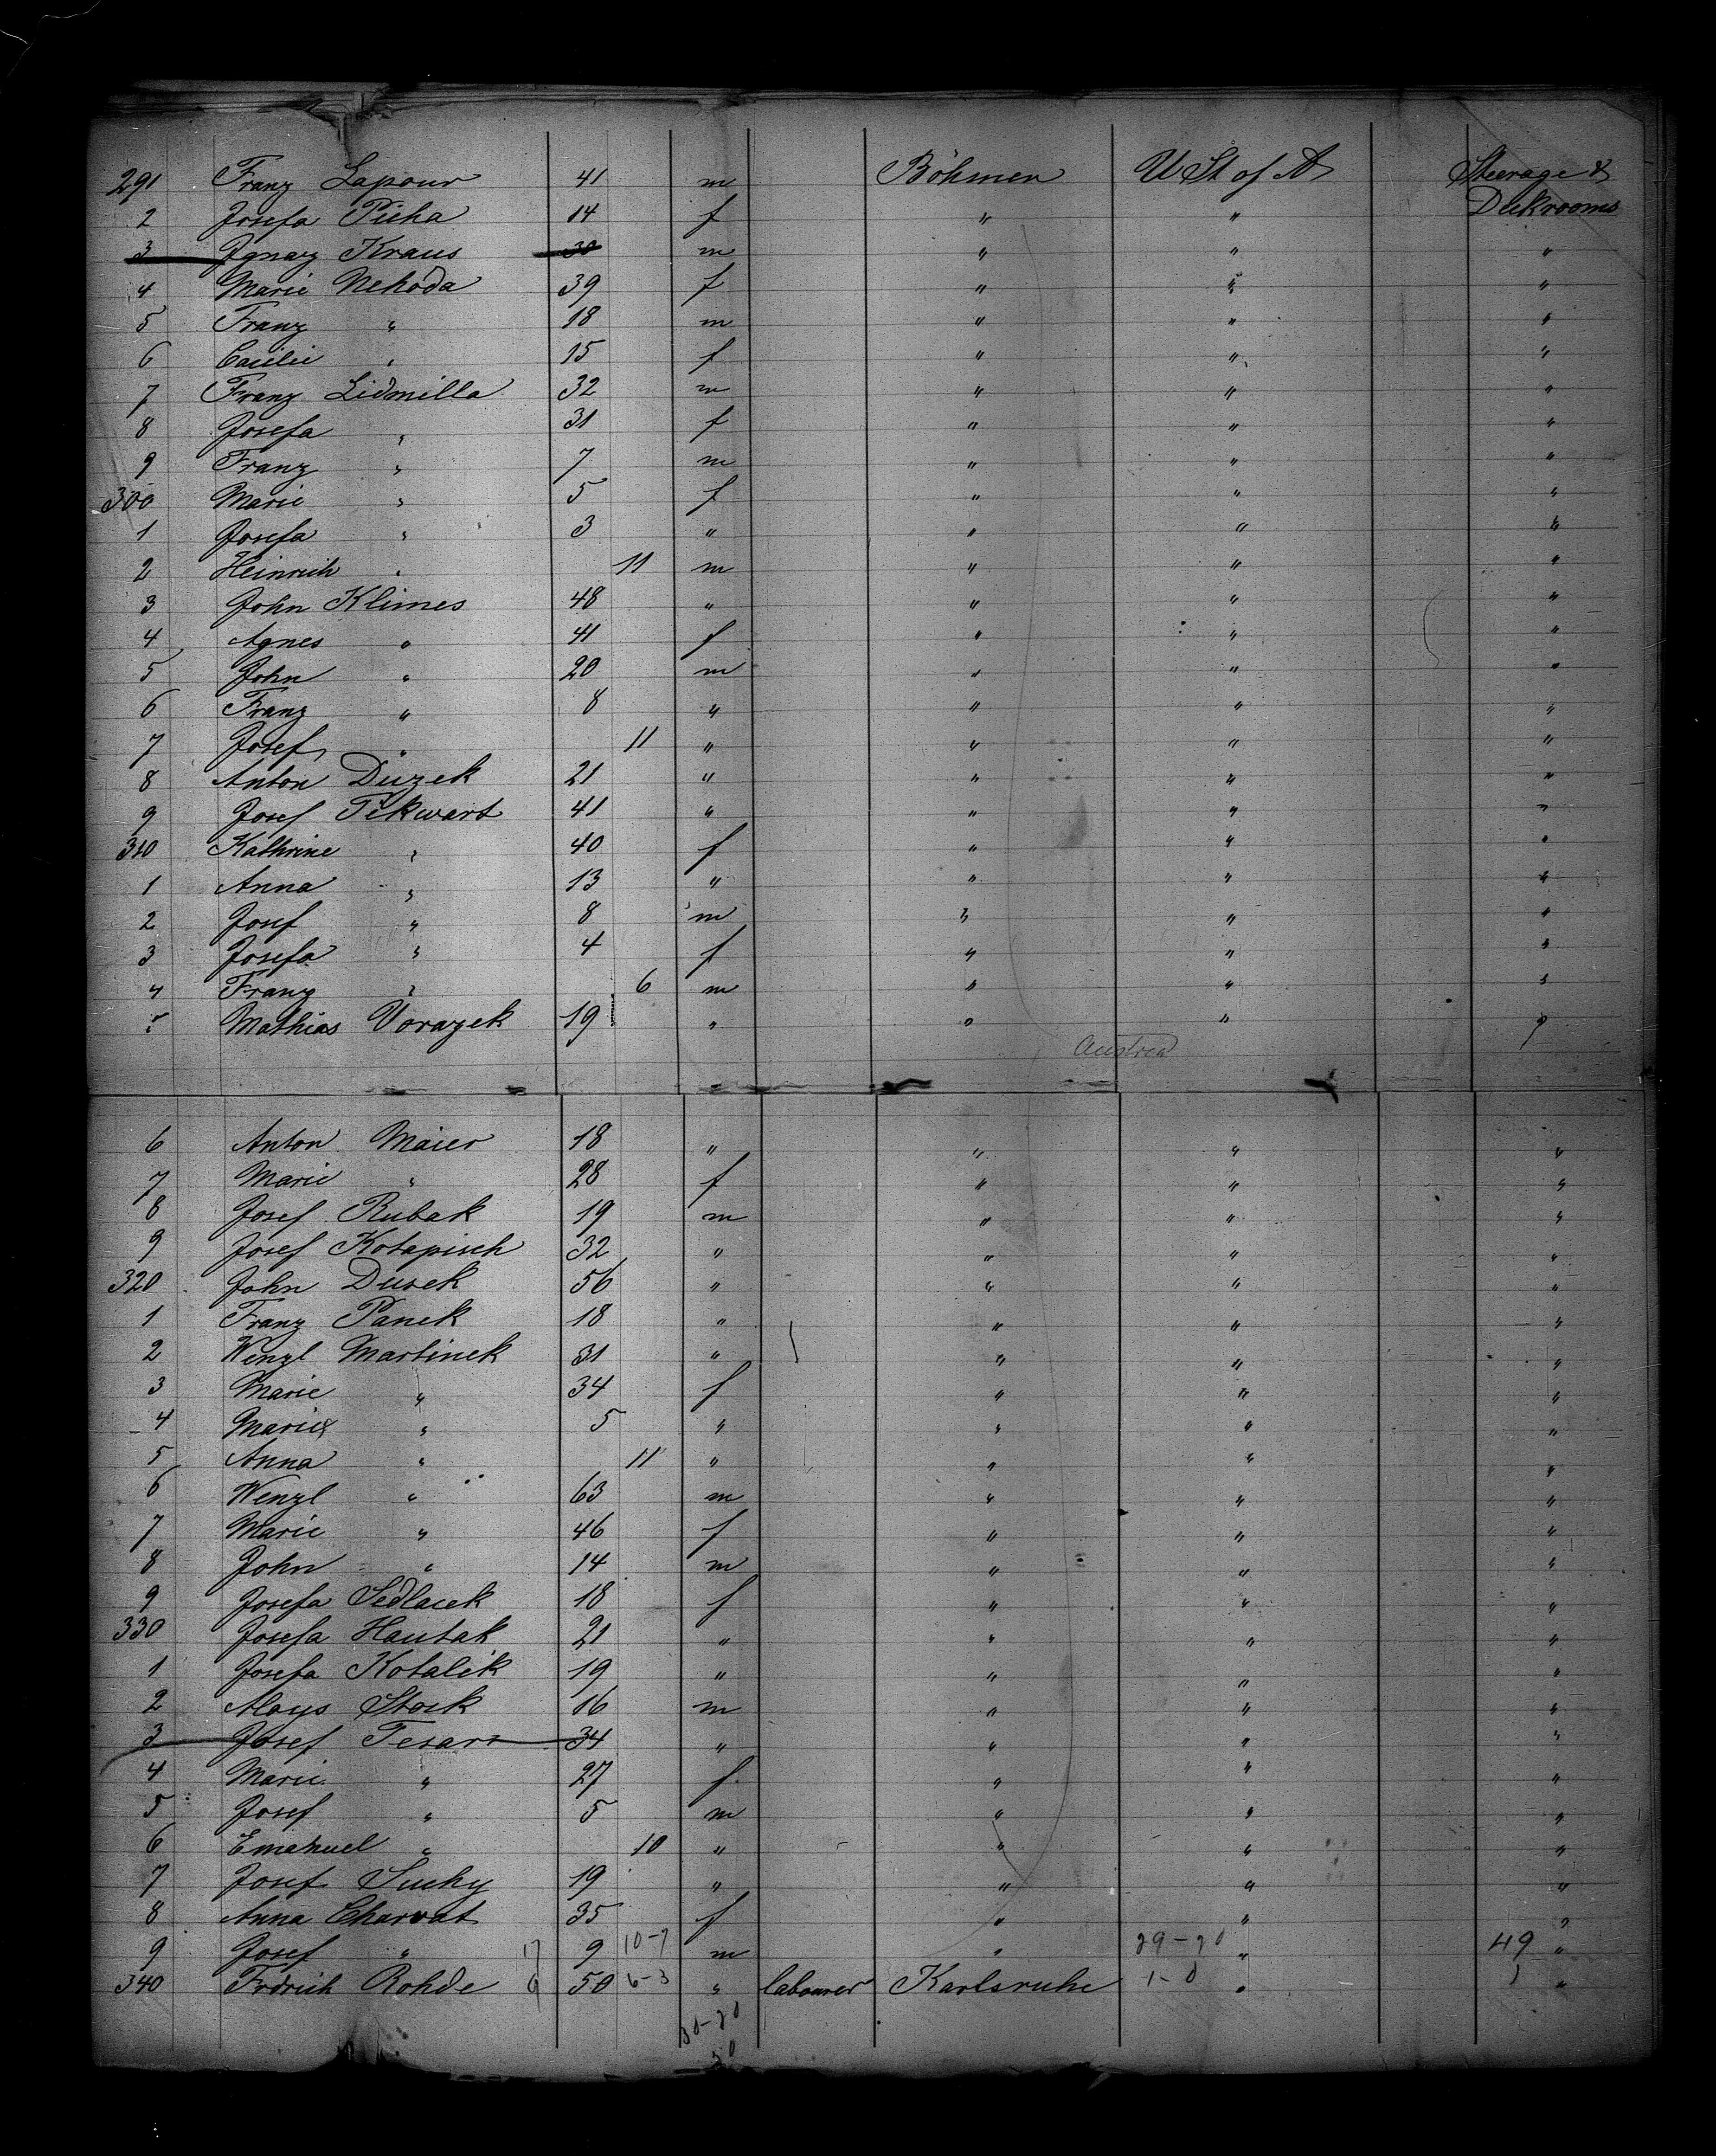 291 Franz Lapour 41 m Böhmen U St of A Steerage &
2 Josefa Picha 14 f " " Deckrooms
3 Ignaz Kraus 30 m " " "
4 Marie Nehoda 39 f " " "
5 Franz " 18 m " " "
6 Cacilie " 15 f " " "
7 Franz Lidmilla 32 m " " "
8 Josefa " 31 f " " "
9 Franz " 7 m " " "
300 Marie " 5 f " " "
1 Josefa " 3 " " " "
2 Heinrich " 11 m " " "
3 John Klimes 48 " " " "
4 Agnes " 41 f " " "
5 John " 20 m " " "
6 Franz " 8 " " " "
7 Josef " 11 " " " "
8 Anton Duzek 21 " " " "
9 Josef Pekwart 41 " " " "
310 Kathrine " 40 f " " "
1 Anna " 13 " " " "
2 Josef " 8 m " " "
3 Josefa " 4 f " " "
4 Franz " 6 m " " "
Mathias Vorazek 19 " " " "
Austria
6 Anton Maier 18 " " " "
7 Marie " 28 f " " "
8 Josef Rubak 19 m " " "
9 Josef Kotapisch 32 " " " "
320 John Dusek 56 " " " "
1 Franz Panek 18 " " " "
2 Wenzl Martinek 31 " " " "
3 Marie " 34 f " " "
4 Marie " 5 " " " "
5 Anna " 11 " " " "
6 Wenzl " 63 m " " "
7 Marie " 46 f " " "
8 John " 14 m " " "
9 Josefa Sedlacek 18 f " " "
330 Josefa Hautak 21 " " " "
1 Josefa Kotalik 19 " " " "
2 Aloys Stock 16 m " " "
3 Josef Tesar 34 " " " "
4 Marie " 27 f " " "
5 Josef " 5 m " " "
6 Emanuel " 10 " " " "
7 Josef Suchy 19 " " " "
8 Anna Charvat 35 f " " "
9 Josef " 17 9 10-7 m " 29-20 " 49 "
340 Frdrich Rohde 9 50 6-3 " labourer Karlsruhe 1-0 " 1 "
30-20